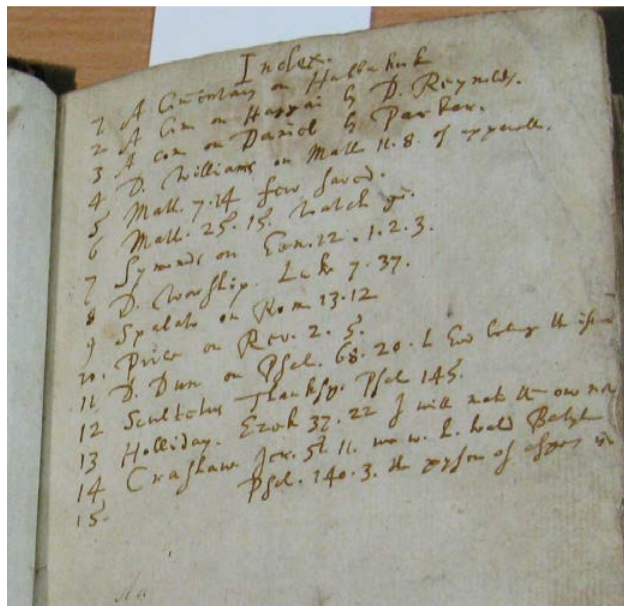 Index.
1 A Comentary on Habbakuk
2 A Com on Haggai by D. Reynolds.
3 A com on Daniel by Parker.
4 D. Williams on Matt. 11. 8. of apparell.
5 Matt. 7. 14 few saved.
6 Matt. 25. 15. watch
7 Symonds on Gen. 22. 1. 2. 3.
8 D. Worship. Luke 7. 37.
9 Spalato on Rom 13. 12
10. Price on Rev. 2. 5.
11 D. Dun on Psal. 68. 20. to God belong the
12 Scultetus Thanksg. Psal 145.
13 Holliday. Ezek 37. 22 I will make them one
14 Crashaw Jer. 51. 11. we w. h. heald Babyl
15. Psal. 140. 3. the poyson of aspes